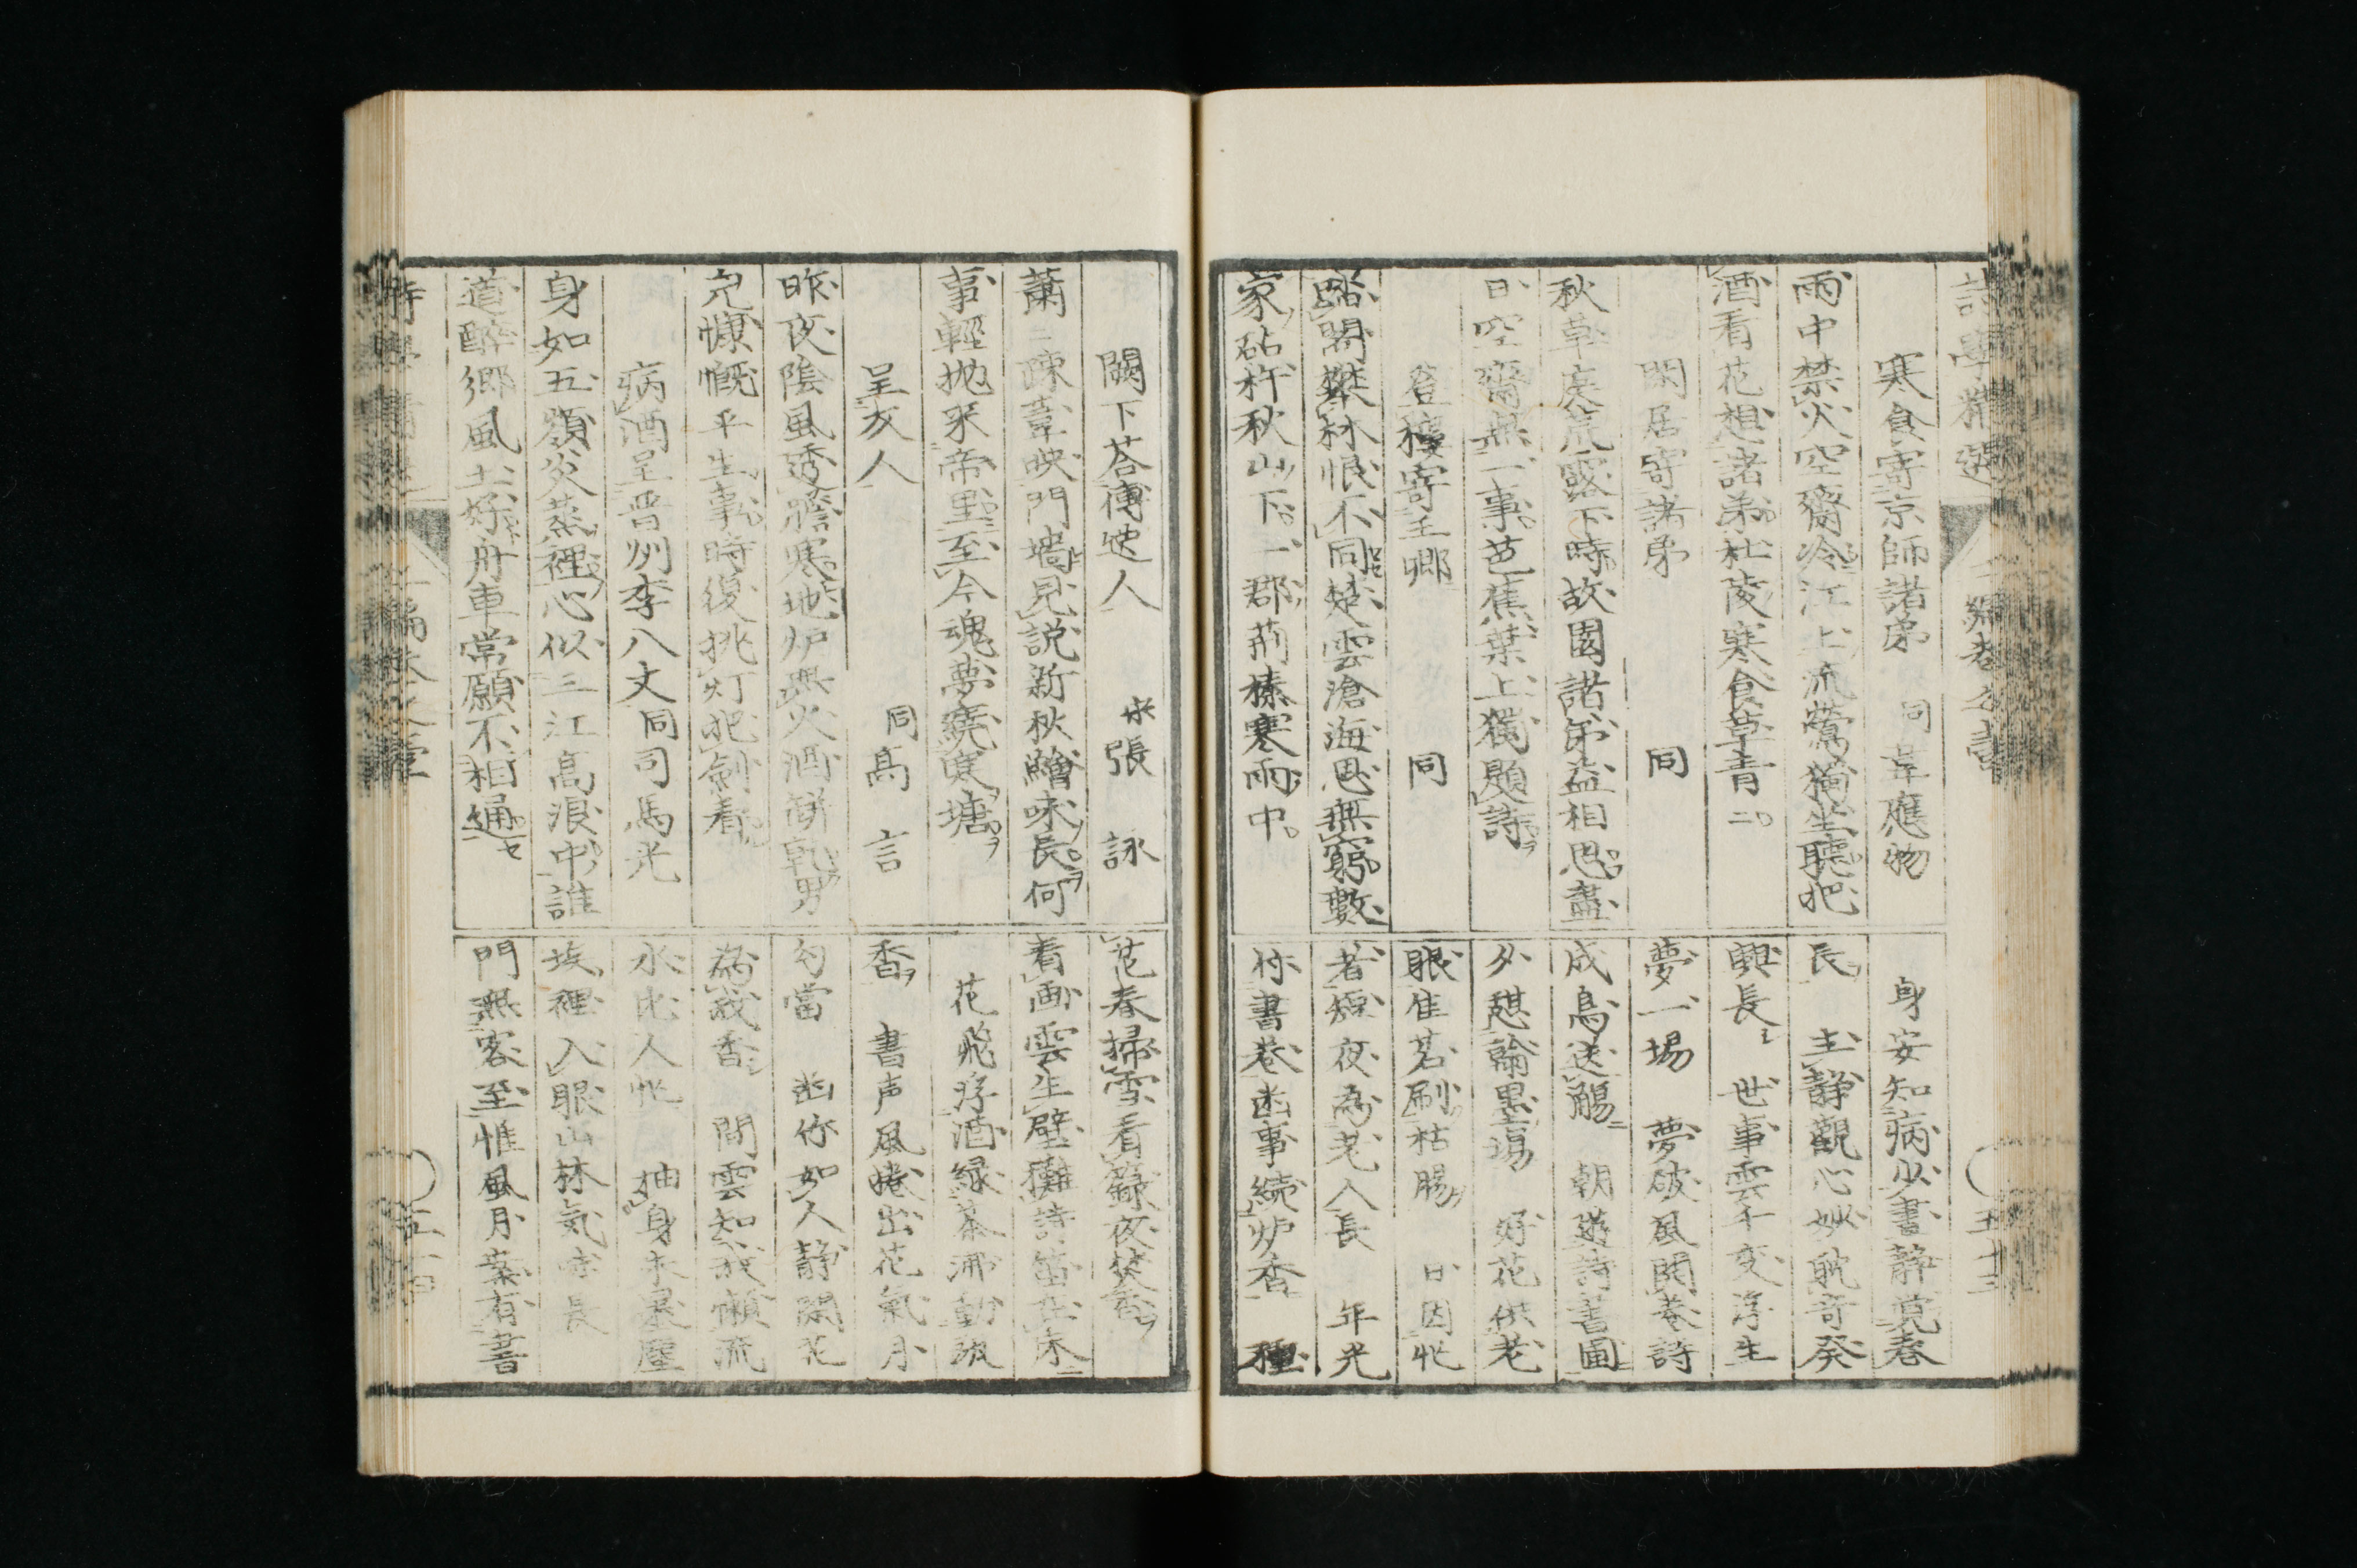 寒食寄京師諸弟 同 韋應物
雨中禁火空齋冷江上流鶯獨坐聽把
酒看花想諸弟杜陵寒食草青二
閑居寄諸弟 同
秋草庭荒露下時故園諸弟益相思盡
日空齋無一事芭蕉葉上獨題詩
登樓寄王卿 同
踏閣攀林恨不同楚雲滄海思無窮數
家砧杵秋山下一郡荊榛寒雨中
身安知病少晝静覚春
長 主静観心妙耽奇發
興長 世事雲千変浮生
夢一場 夢破風関巻詩
成鳥送觴 朝遊詩書圃
夕憩翰墨場 好花供老
眼佳茗刷枯腸 日因忙
者短夜為老人長 年光
你書巻幽事続炉香 種
闕下荅傅逸人 宋張詠
蕭二疎葦映門墻見説新秋鱠味長何
事輕抛来帝里至今魂夢繞寒塘
呈友人 同高言
昨夜陰風透膽寒地炉無火酒缾乾男
児慷慨平生事時復挑灯把劍看
病酒呈晋州李八丈 同司馬光
身如五嶺炎蒸裡心似三江高浪中誰
道酔郷風土好舟車常願不相通
花春掃雪看籙夜焚香
看画雲生壁攤詩笛在床
花飛浮酒緑茶沸動瓶
香 書声風捲出花氣月
勾當 幽你如人静閑花
為我香 閒雲知我懶流
水比人忙 抽身未暴塵
埃裡入眼山林気味長
門無客至惟風月案有書